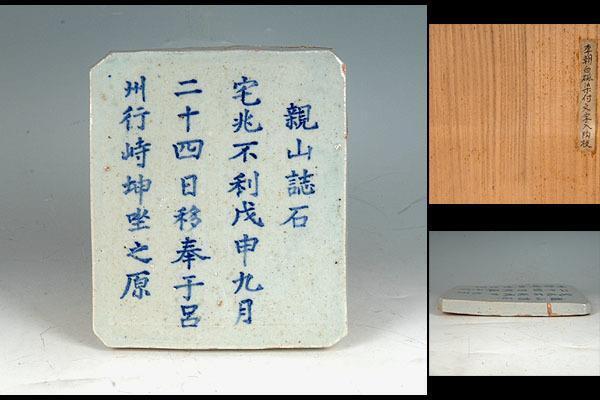 親山誌石
宅兆不利戊申九月
二十四日移奉于呂
州行峙坤唑之原
李朝白磁染付文字入陶板